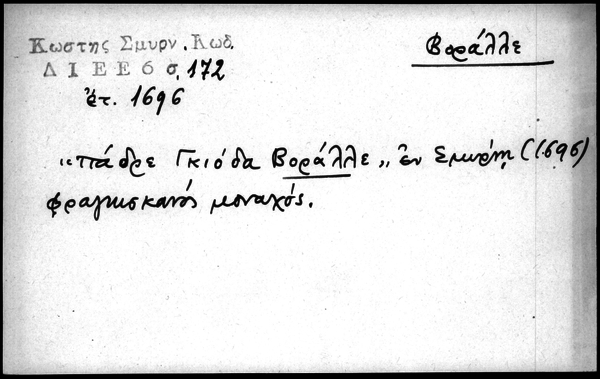 Κωστης Σμυρν. Κωδ.
Βοράλλε
ΔΙΕΕ 6 σ. 172
ἔτ. 1696
"πάδρε Γκιόδα Βοράλλε" ἐν Σμύρνῃ (1696)
φραγκισκανός μοναχός.